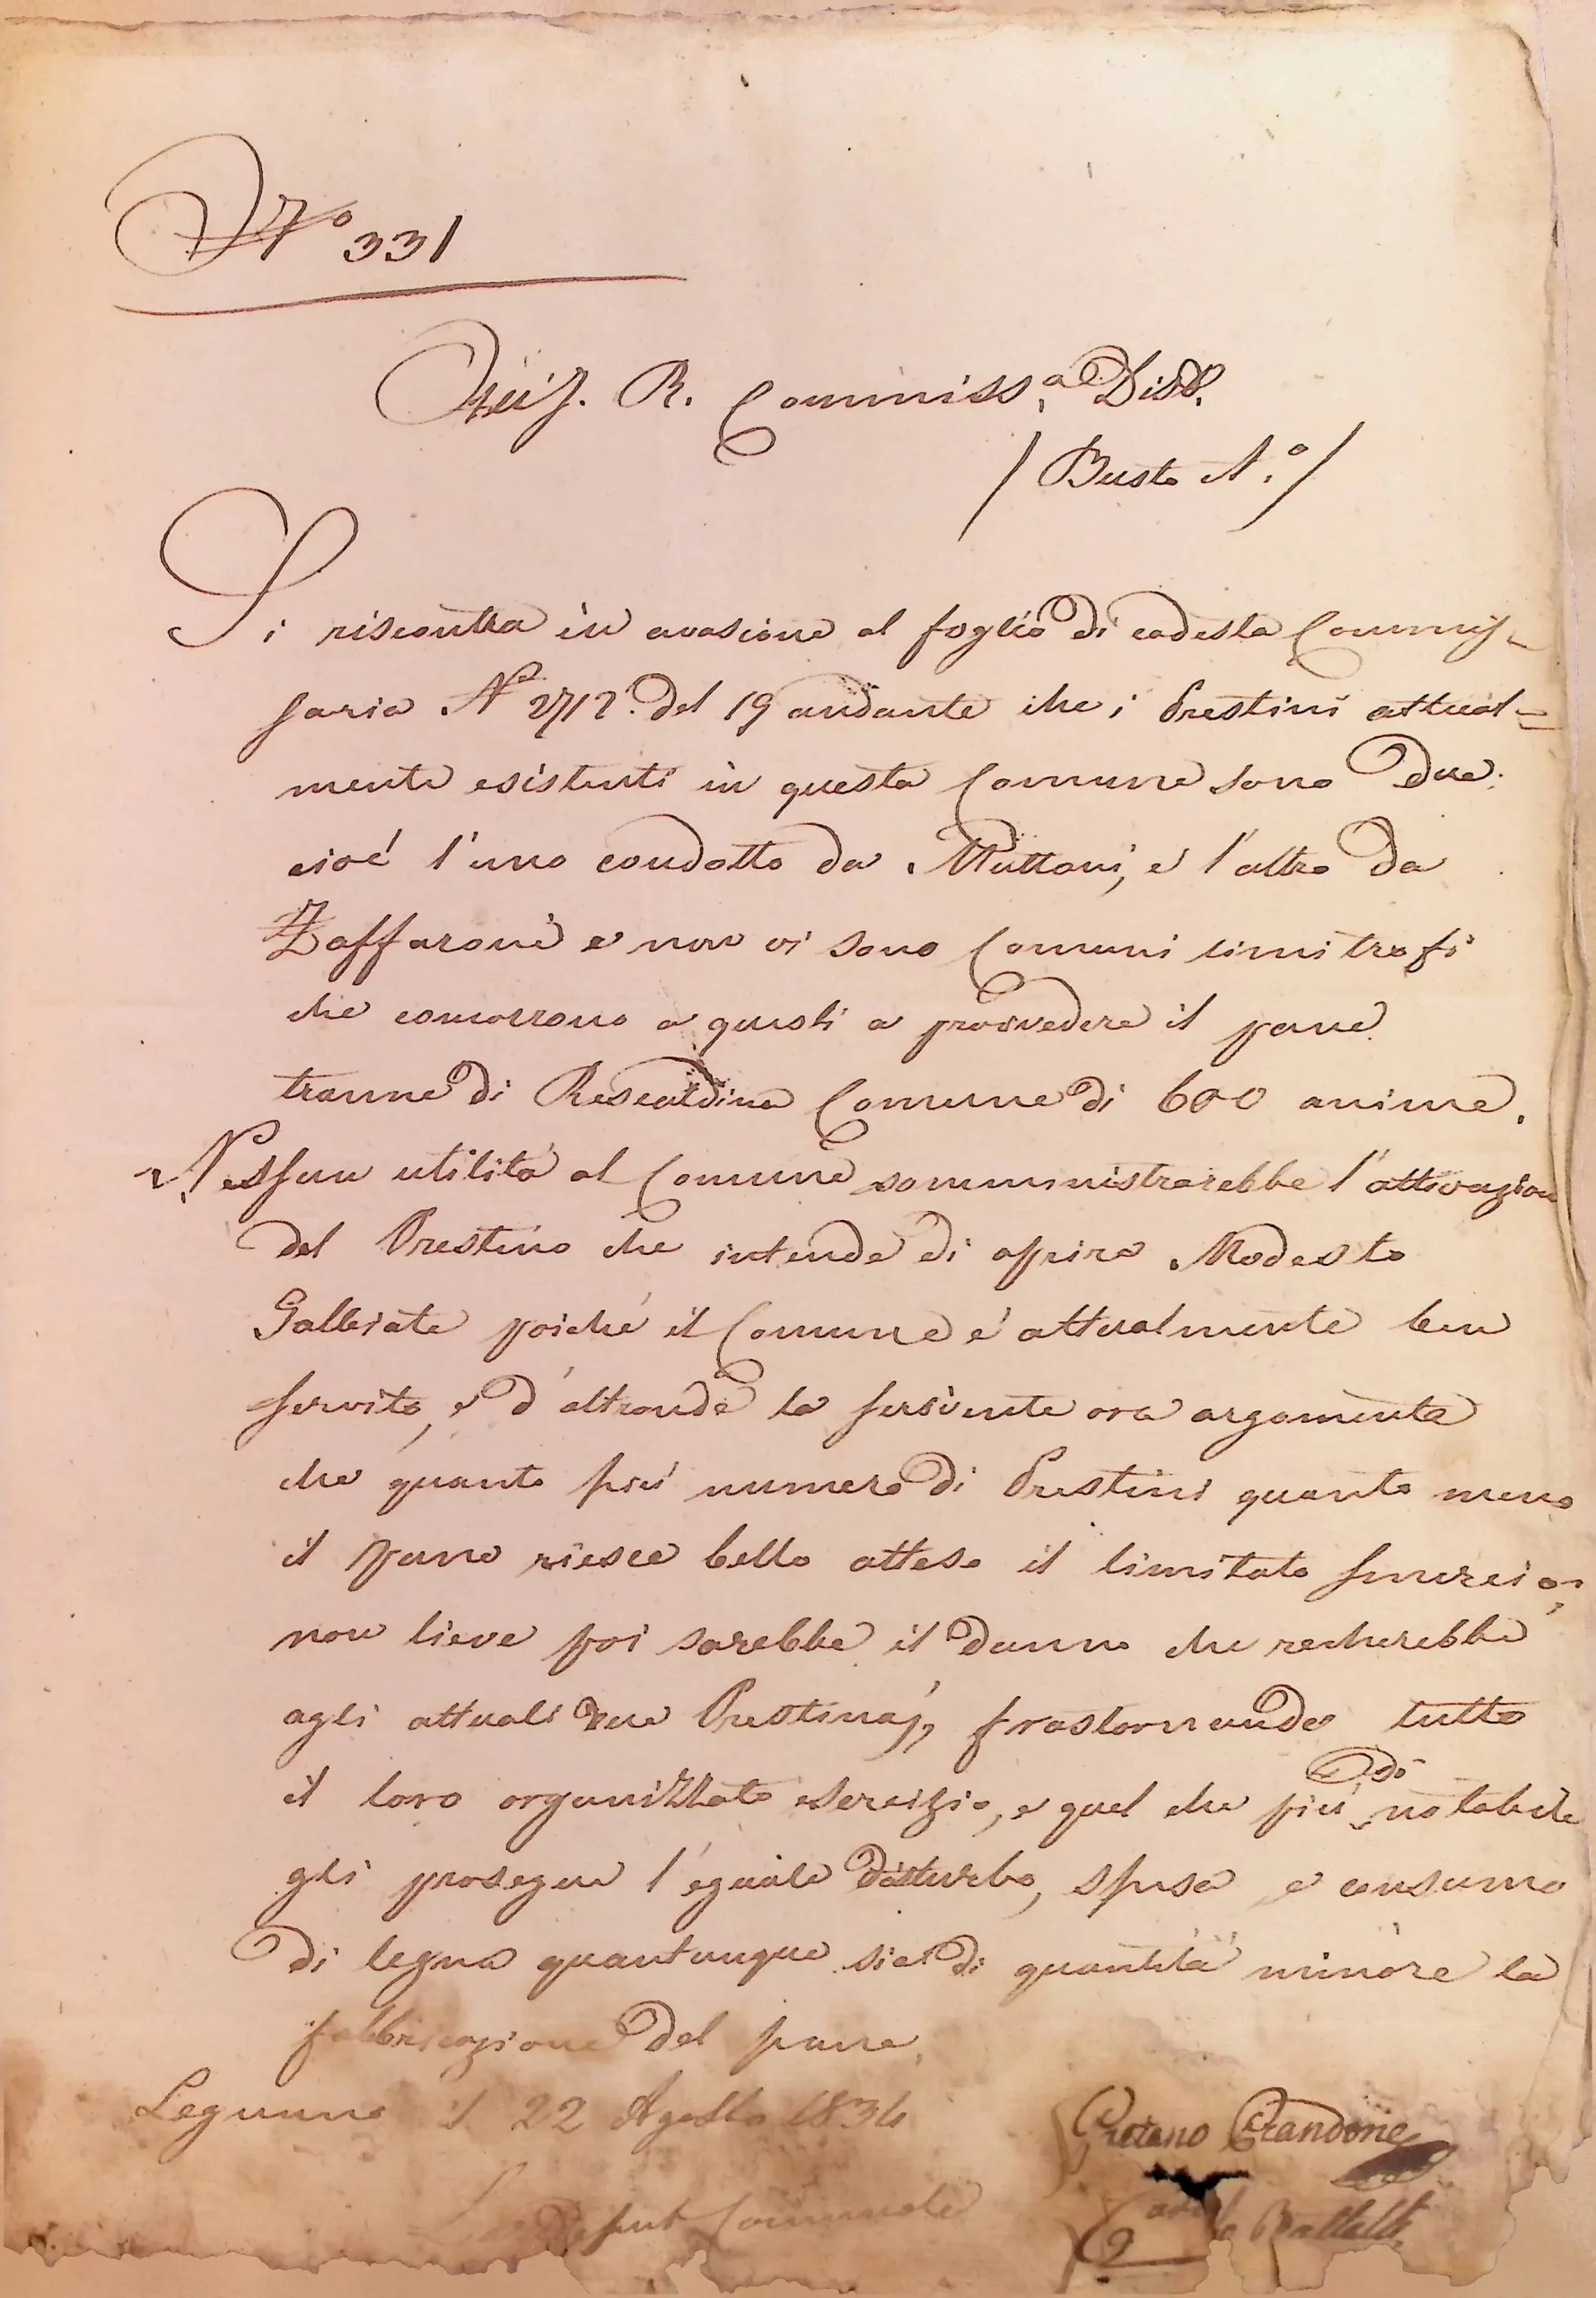 N.° 331
All' I. R. Commiss.ª Dist.
/ Busto A.° /
Si riscontra in evasione al foglio di codesta Commis-
saria N° 2712. del 19 andante che i Prestini attual=
mente esistenti in questa Comune sono due:
cioé l'uno condotto da Muttoni, e l'altro da
Zaffaroni e non vi sono Comuni limitrofi
che concorrono a questi a provvedere il pane
tranne di Rescaldina Comune di 600 anime.
Nessun utilità al Comune somministrarebbe l'attivazion
del Prestino che intende di aprire Modesto
Galbiate poiché il Comune é attualmente ben
servito, e d'altronde la
che quanto piú numero di Prestini quanto meno
il pane riesce bello atteso il limitato smercio;
non lieve poi sarebbe il danno che recherebbe
agli attuali due Prestinaj, frastornando tutto
il loro organizzato esercizio, e quel che piú di notabile
gli prosegue l'eguale disturbo, spesa e consumo
di legna quantunque sia di quantità minore la
fabbricazione del pane.
Legnano il 22 Agosto 1834
La Deput. Comunale
Gaetano Prandone
Carlo